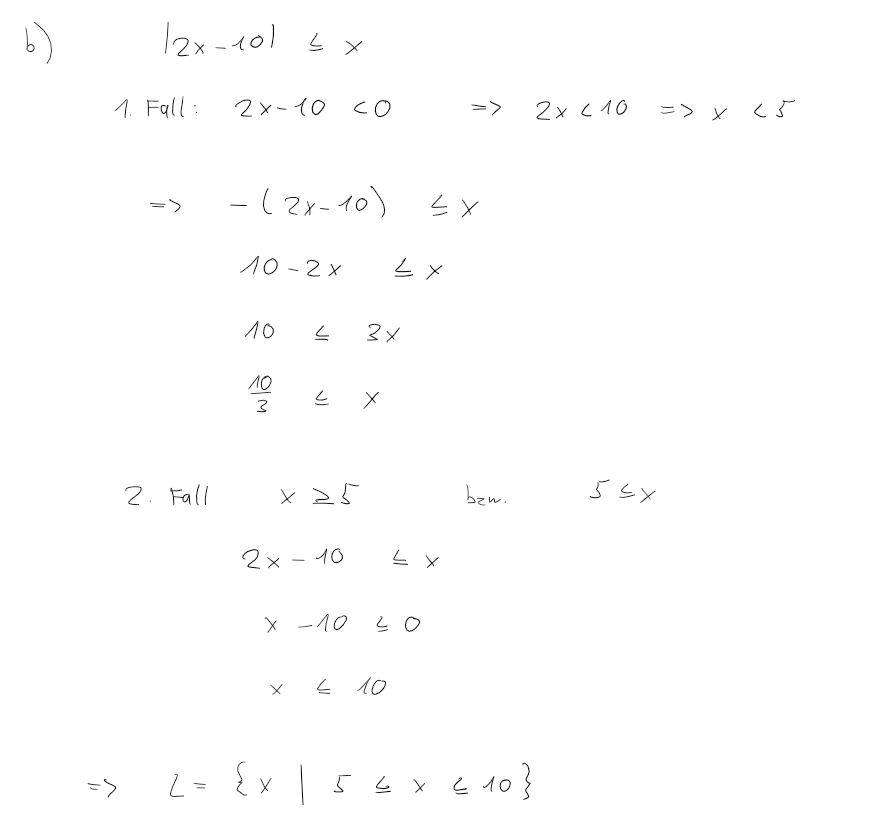 b) |2x-10| ≤ x
1. Fall: 2x-10 <0 => 2x < 10 => x < 5
=> -(2x-10) ≤ x
10-2x ≤ x
10 ≤ 3x
10/3 ≤ x
2. Fall x ≥ 5 bzw. 5 ≤ x
2x-10 ≤ x
x -10 ≤ 0
x ≤ 10
=> L = {x | 5 ≤ x ≤ 10}